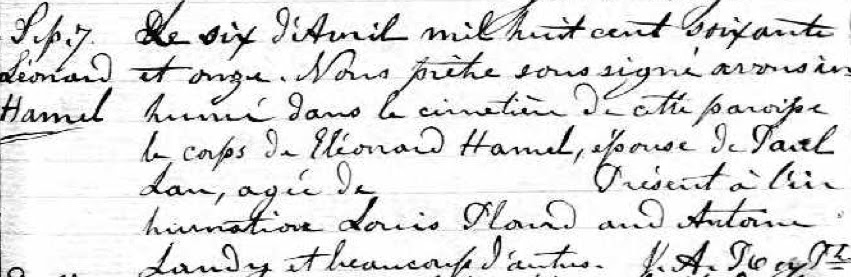 S. p. 7. Le six d'Avril mil huit cent soixante
Léonard et onze. Nous prêtre soussigné avons in
Hamel humé dans le cimetière de cette paroisse
le corps de Eléonard Hamel, épouse de Paul
Lau, agée de Présent à l'in
humation Louis and Antoine
Landry et beaucoup d'autres. J. A.